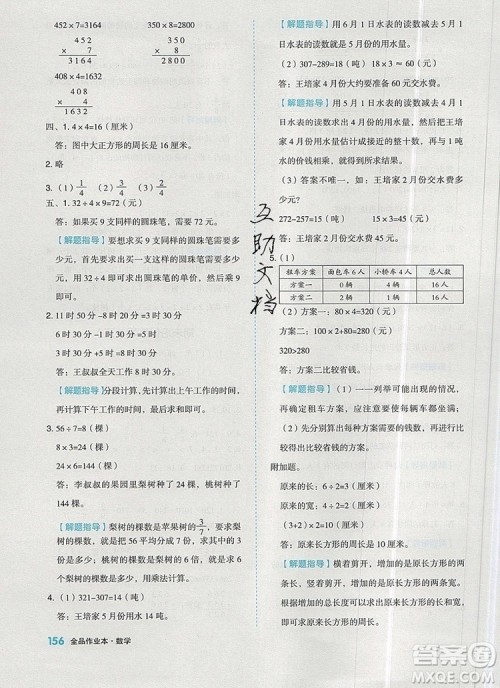 227×9=2043 350×8=2800
4 5 7 3 5 8
× 9 × 8
2 0 4 3 2 8 0 0
408×4=1632
4 0 8
× 4
1 6 3 2
四、1. 4×4=16（厘米）
答：图中大正方形的周长是 16 厘米。
2. 略
3. （1）1/4 （2）3/4 （3）2/4
五、1. 32÷4=8（元） 8×9=72（元）
答：如果买 9 支同样的圆珠笔，需要 72 元。
【解题指导】要想求买 9 支同样的圆珠笔需要多
少元，用 32÷4 求出每支圆珠笔的价钱，再乘 9
就可以了。
2. 11 时 50 分-8 时 30 分=3 时 20 分
6 时 30 分-1 时 30 分=5 时
3 时 20 分+5 时=8 时 20 分
答：王叔叔全天工作的时间是 8 时 20 分。
【解题指导】分段计算，先算出上午工作的时间，
再计算出下午工作的时间，再相加。
3. 56÷7=8（棵）
8×3=24（棵）
24×6=144（棵）
答：李叔叔的果园里梨树有 24 棵，桃树有
144 棵。
【解题指导】梨树的棵数是苹果树的 3/7，要求梨
树的棵数，应先求出一份是多少，再乘 3 就是梨
树的棵数；桃树的棵数是梨树的 6 倍，要求桃树
的棵数，用乘法计算。
4. （1）321-307=14（吨）
答：王培家 5 月份用水 14 吨。
156 全品作业本·数学
【解题指导】用 6 月 1 日水表的读数减去 5 月 1
日水表的读数，就是 5 月份的用水量。
（2）307-289=18（吨） 18×3≈60（元）
答：王培家 4 月份大约要准备 60 元交水费。
【解题指导】用 5 月 1 日水表的读数减去 4 月 1
日水表的读数求出 4 月份的用水量，再把 4 月份
的用水量估计成接近的整十数，再与 1 吨
水的价钱相乘，所得积就是大约准备的钱数。
（3）答案不唯一，如，王培家 2 月份交水费多
少元？
272-257=15（吨） 15×3=45（元）
答：王培家 2 月份交水费 45 元。
5. （1）
租车方案 面包车 6 人 小轿车 4 人 总人数
方案一 0 辆 4 辆 16 人
方案二 2 辆 1 辆 16 人
（2）方案一：80×4=320（元）
方案二：100×2+80=280（元）
320>280
答：方案二比较省钱。
【解题指导】（1）一一列举可能出现的情况，
再确定租车方案，应注意不要重复和遗漏。
（2）利用求出的每种方案需要的钱数，进行比
较求出比较省钱的方案。
附加题。
原来的长：6÷2=3（厘米）
原来的宽：4÷2=2（厘米）
（3+2）×2=10（厘米）
答：原来长方形的周长是 10 厘米。
【解题指导】横着剪开，增加的是原长方形的两
条长；竖着剪开，增加的是原长方形的两条宽。
根据增加的厘米数，求出原来长方形的长和宽，
再计算周长。
互助文档
答案圈
MXQE.COM